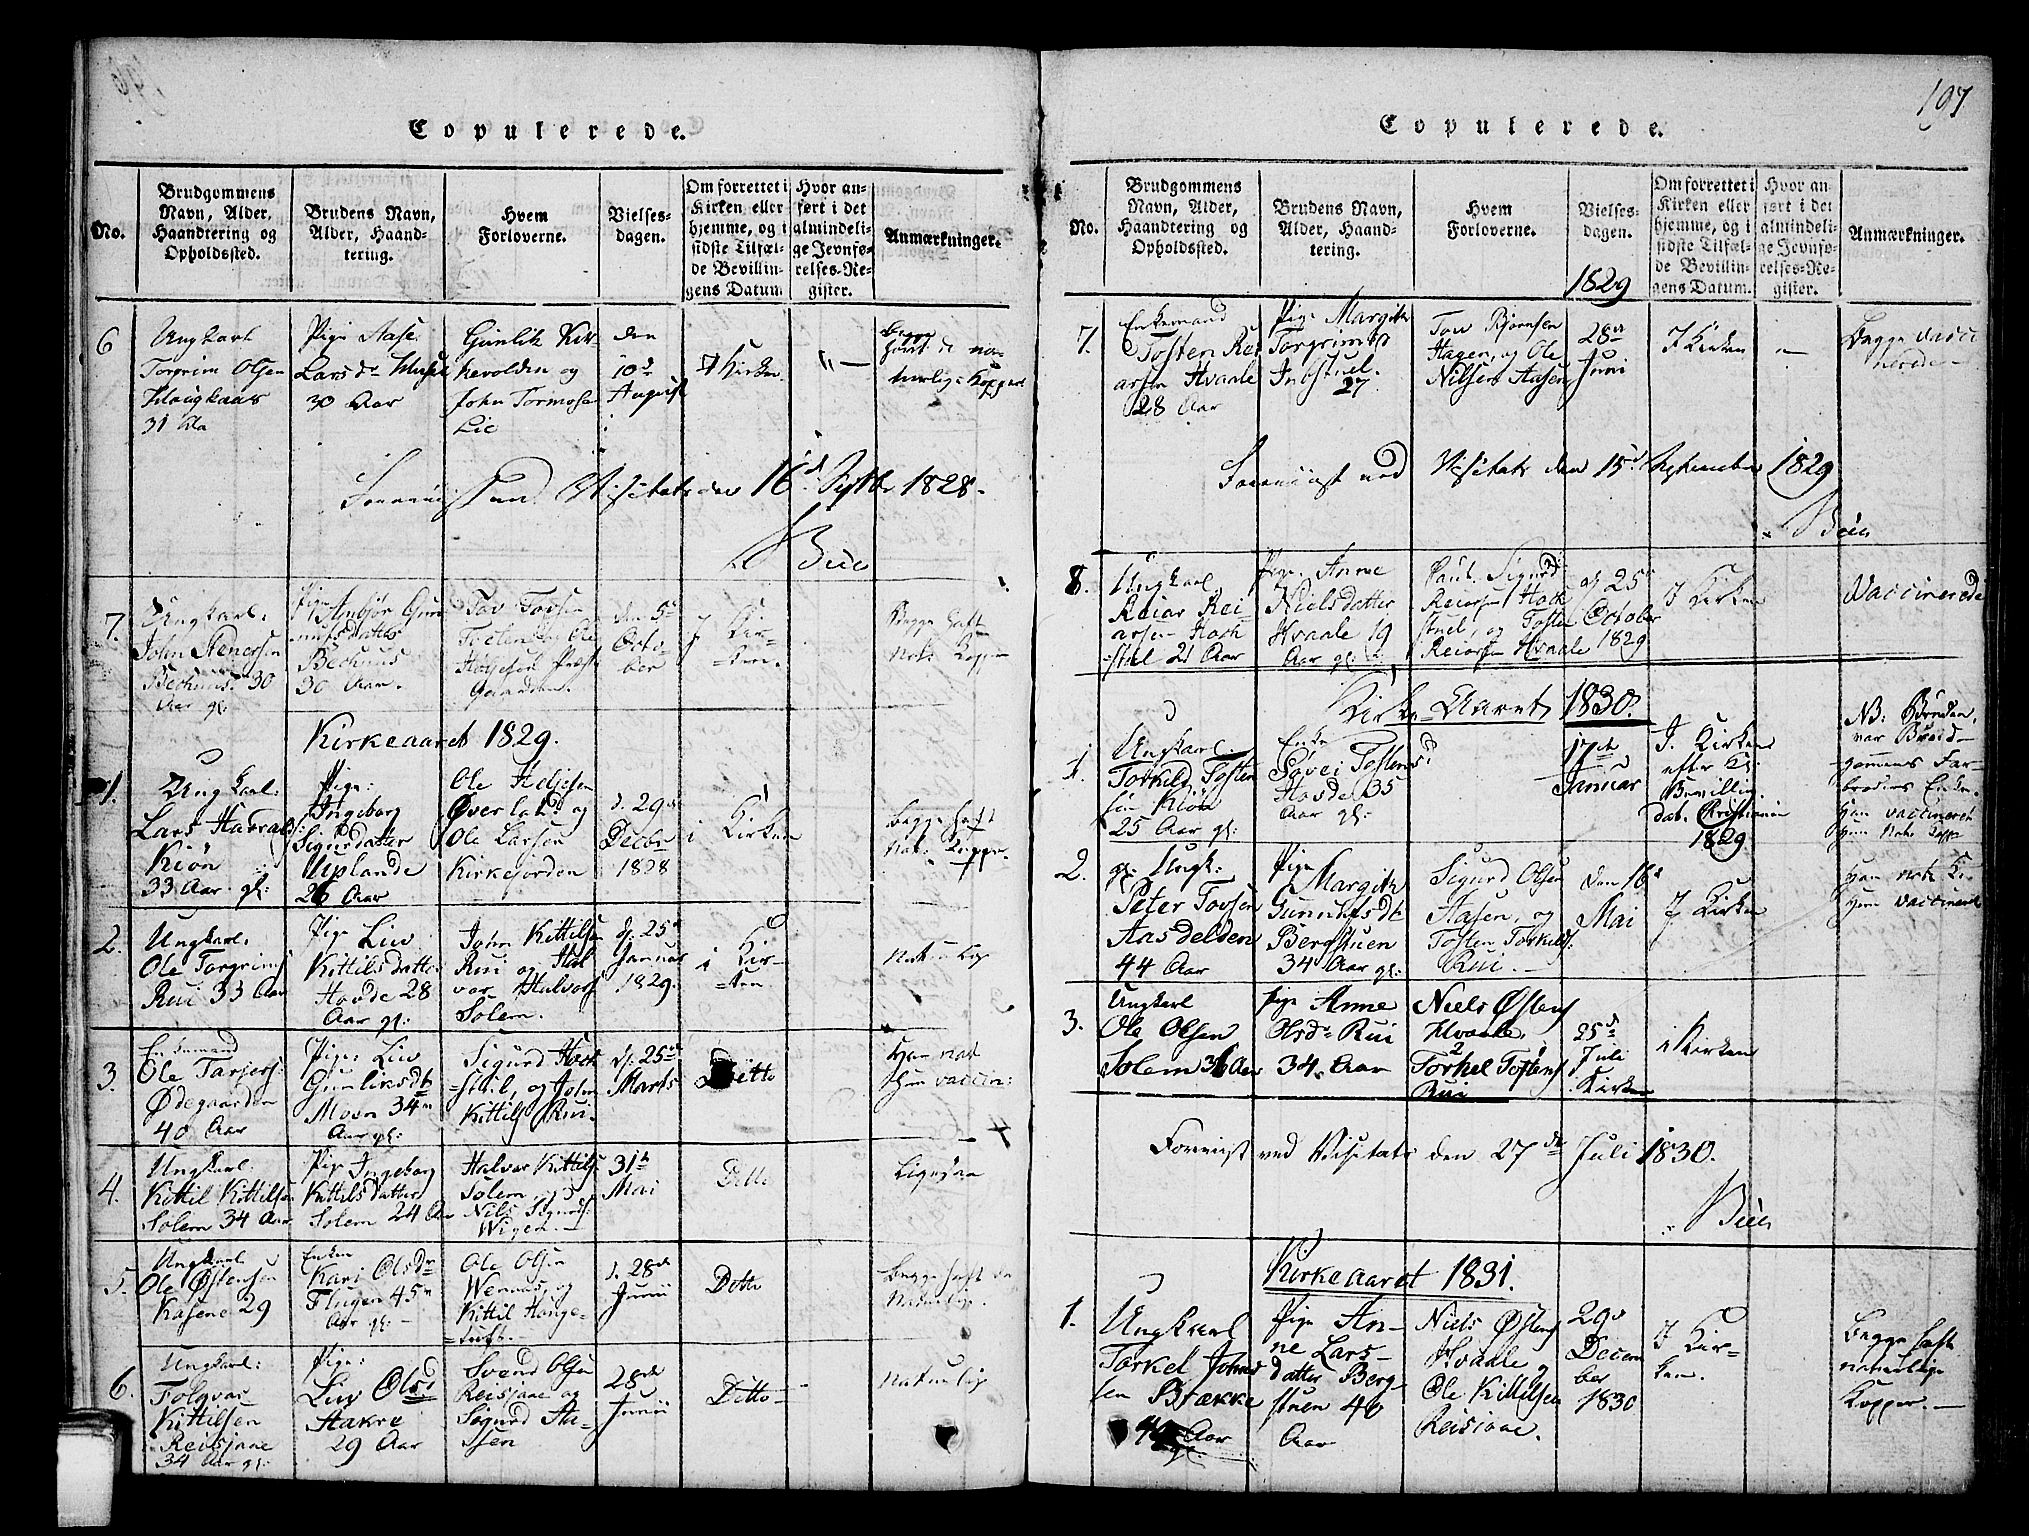 197
Copulerede.
No.
Brudgommens
Navn, Alder,
Haandtering og
Opholdssted.
Brudens Navn,
Alder, Haand-
tering.
Hvem
Forloverne.
Vielses-
dagen.
Om forrettet i
Kirken eller
hjemme, og i
sidste Tilfæl-
de Bevillin-
gens Datum.
Hvor an-
ført i det
almindeli-
ge Jevnfø-
relses-Re-
gister.
Anmærkninger.
6
Ungkarl
Torgrim Olsen
31 Aa
Pige Aase
Larsdr
30 Aar
Gunlik Kir-
kevolden og
John Tormosen
Lie
den
10d
August
I Kirken
"—
Begge
havt de na-
turlige Kopper
Foreviist ved Visitats den 16d Septbr 1828.
7.
Ungkarl.
John
30
Aar gl.
Pige
30 Aar.
Tov Tovsen
den 5d
Octo-
ber
i Kir-
ken.
Begge haft
Nat. Kopper
Kirkeaaret 1829.
1.
Ungkarl:
Lars
Kiøn
33 Aar gl:
Pige:
Ingeborg
Sigurdatter
Uplande
26 Aar
Ole Heljesen
Øverland og
Ole Larsen
Kirkejorden
d. 29d
Decbr
1828
i Kirken
Begge haft
Nat. Kopper
2.
Ungkarl.
Ole Torgrims
Rui 33 Aar
Pige Liv
Kittilsdatter
Hovde 28
Aar gl:
John Kittilsen
Rui og Hal
var Halvors
Solem.
d. 25d
Januar
1829.
i Kir-
ken.
Nat. Kop
3.
Enkemand
Ole Tarjers:
Ødegaarden
40 Aar
Pige: Liv
Gunliksdt
Moen 34
Aar gl:
Sigurd Hoek
stul, og John
Kittils Rui.
d. 25d
Marts
Ditto
Han nat
Hun vaccin:
4.
Ungkarl.
Kittil Kittilsen
Solem 34 Aar
Pige Ingeborg
Kittilsdatter
Solem 24 Aar
Halvor Kittils
Solem
Nils Sigurds:
Wigen.—
31te
Mai
Ditto
Ligesaa
5.
Ungkarl
Ole Østensen
Kasene 29
Enken
Kari Olsdr
Flugen 45
Aar gl.—
Ole Olsen
Wernaas, og
Kittil Houge-
tuft.—
d. 28de
Junii
Ditto
Begge haft de
Naturlig.
6.
Ungkarl:
Folqvar
Kittilsen
Reisjaae
34 Aar gl:
Pige:
Liv Olsd
Aakre
29 Aar
Svend Olsen
Reisjaae og
Sigurd Aa-
sen
28de
Junii
Ditto
Naturlig
Copulerede.
No.
Brudgommens
Navn, Alder,
Haandtering og
Opholdssted.
Brudens Navn,
Alder, Haand-
tering.
Hvem
Forloverne.
Vielses-
dagen.
1829
Om forrettet i
Kirken eller
hjemme, og i
sidste Tilfæl-
de Bevillin-
gens Datum.
Hvor an-
ført i det
almindeli-
ge Jevnfø-
relses-Re-
gister.
Anmærkninger.
7.
Enkemand
Tosten Rei
arsen Hvaale
28 Aar
Pige Margith
Torgrimsd
27
Tov Bjørnsen
Hagen, og Ole
Nilsen Aasen
28de
Juni
I Kirken
"
Begge vacci
nerede—
Foreviist ved Visitats den 15d September 1829
8.
Ungkarl.
Reiar Rei
arsen Hoek
stul 21 Aar
Pige. Anne
Nielsdatter
Hvaale 19
Aar gl:
Sigurd
Reiarsen Hoek
stuel, og Tosten
Reiarsen Hvaale
25
October
1829
I Kirken
Vaccinerede
Kirke-Aaret 1830.
1.
Ungkarl.
Torkild Tosten
sen Kiøn
25 Aar gl:
Enke
Tostensd
Hovde 35
Aar gl:
17de
Januar
I. Kirken
efter Kl:
Bevilling
dat. Christiania
1829
NB: Bruden
var Brud-
gommens Far-
broders Enke.
Han vaccineret
Hun Nat. Kopp
2.
gl. Ungk.
Peter Tovsen
Aasdelden
44 Aar
Pige
Margith
Gunnulfsdt
Bergstuen
34 Aar gl:
Sigurd Olsen
Aasen, og
Tosten Torkilds:
Rui.—
den 16d
Mai
I Kirken
Han nat. K
Hun vaccineret
3.
Ungkarl
Ole Olsen
Solem 36 Aar
Pige Anne
Olsdr Rui
34. Aar
Niels Østens
Hvaale
2
Torkel Tostens
Rui
25d
Juli
Kirken
i Kirken
Foreviist ved Visitats den 27de Juli 1830.
Kirkeaaret 1831.
1.
Ungkarl
Torkel Johns
sen Bække
44 Aar
gl.
Pige An-
ne Lars-
datter Berg-
stuen 40
Aar
Niels Østens
Hvaale
2
Ole Kittilsen
Reisjaae.
29d
Decem
ber
1830
I Kir-
ken.
Begge haft
naturlige
Kopper.—